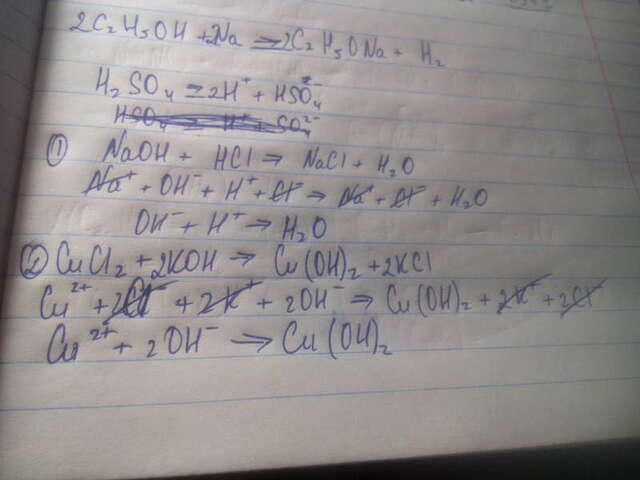 2C₂H₅OH + 2Na = 2C₂H₅ONa + H₂
H₂SO₄ = 2H⁺ + HSO₄²⁻
HSO₄⁻ = H⁺ + SO₄²⁻
① NaOH + HCl → NaCl + H₂O
Na⁺ + OH⁻ + H⁺ + Cl⁻ → Na⁺ + Cl⁻ + H₂O
OH⁻ + H⁺ → H₂O
② CuCl₂ + 2KOH → Cu(OH)₂ + 2KCl
Cu²⁺ + 2Cl⁻ + 2K⁺ + 2OH⁻ → Cu(OH)₂ + 2K⁺ + 2Cl⁻
Cu²⁺ + 2OH⁻ → Cu(OH)₂